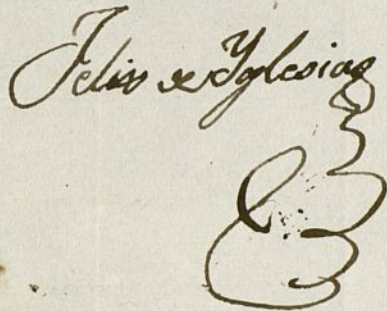 Felix de Yglesias